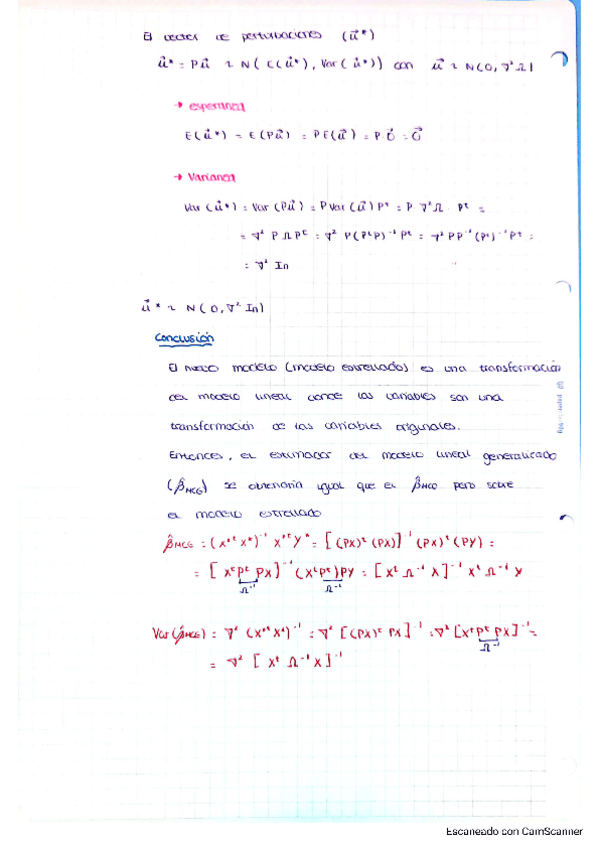 El vector de perturbaciones (u⃗*)
u⃗* = Pu⃗ ~ N( E(u⃗*), Var(u⃗*)) con u⃗ ~ N(0, ∇²Ω)
→ esperanza
E(u⃗*) = E(Pu⃗) = PE(u⃗) = P0⃗ = 0⃗
→ Varianza
Var(u⃗*) = Var(Pu⃗) = PVar(u⃗)Pᵗ = P ∇²Ω Pᵗ =
= ∇² PΩPᵗ = ∇² P(PᵗP)⁻¹Pᵗ = ∇² PP⁻¹(Pᵗ)⁻¹Pᵗ =
= ∇² In
u⃗* ~ N(0, ∇² In)
Conclusión
El nuevo modelo (modelo estrellado) es una transformación
del modelo lineal donde las variables son una
transformación de las variables originales.
Entonces, el estimador del modelo lineal generalizado
(β̂MCG) se obtendría igual que el β̂MCO pero sobre
el modelo estrellado
β̂MCG = (X*ᵗX*)⁻¹ X*ᵗY* = [(PX)ᵗ(PX)]⁻¹(PX)ᵗ(PY) =
= [XᵗPᵗPX]⁻¹(XᵗPᵗ)PY = [XᵗΩ⁻¹X]⁻¹XᵗΩ⁻¹Y
Ω⁻¹ Ω⁻¹
Var(β̂MCG) = ∇²(X*ᵗX*)⁻¹ = ∇²[(PX)ᵗPX]⁻¹ = ∇²[XᵗPᵗPX]⁻¹ =
Ω⁻¹
= ∇²[XᵗΩ⁻¹X]⁻¹
Escaneado con CamScanner